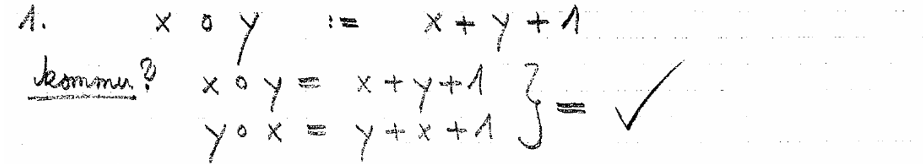 1. x ∘ y := x + y + 1
kommu? x ∘ y = x + y + 1
y ∘ x = y + x + 1 } = ✓